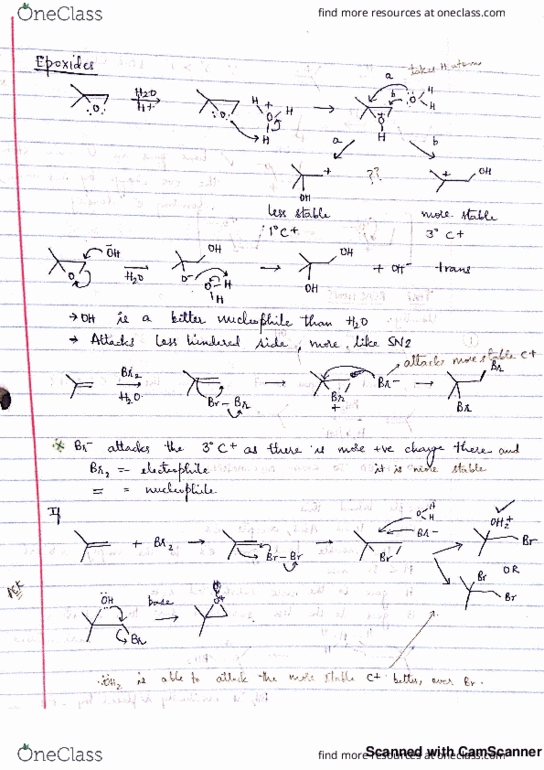 OneClass
find more resources at oneclass.com
Epoxides
takes H atom
a
H2O
H+
O
O
H + H
O
H
b
O
H
H
O
H
a
b
+
OH
??
+
OH
less stable
1° C+
more stable
3° C+
OH
O
H2O
OH
O-
O-H
H
OH
OH
+ OH-
trans
→ OH is a better nucleophile than H2O
→ Attacks less hindered side, more like SN2
attacks more stable C+
Br2
H2O
Br - Br
Br
+
Br-
Br
Br
* Br- attacks the 3° C+ as there is more +ve charge there and
Br2 = electrophile
it is more stable
= = nucleophile
If
+ Br2
Br - Br
Br
H
O
H
Br-
OH2+
Br
OR
Br
Br
OH
Br
base
O
OH2 is able to attack the more stable C+ better, over Br-
OneClass
find more resources at oneclass.com
Scanned with CamScanner